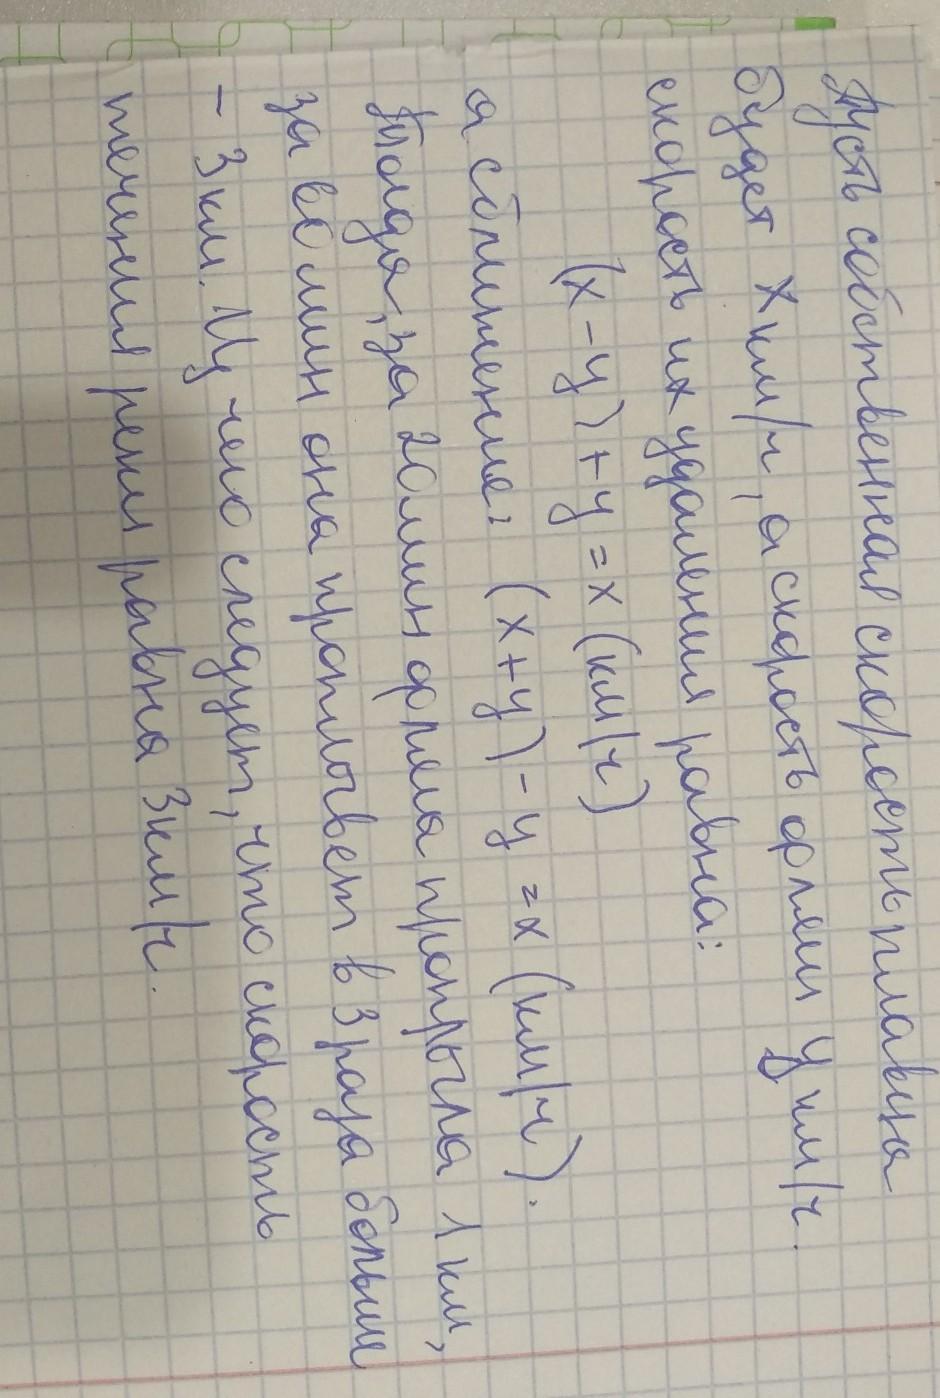 Пусть собственная скорость пловца
будет x км/ч, а скорость фляги y км/ч.
скорость их удаления равна:
(x-y)+y=x (км/ч)
а сближения: (x+y)-y=x (км/ч).
Тогда, за 20 мин фляга проплыла 1 км,
за 60 мин она проплывет в 3 раза больше
- 3 км. Из чего следует, что скорость
течения реки равна 3 км/ч.